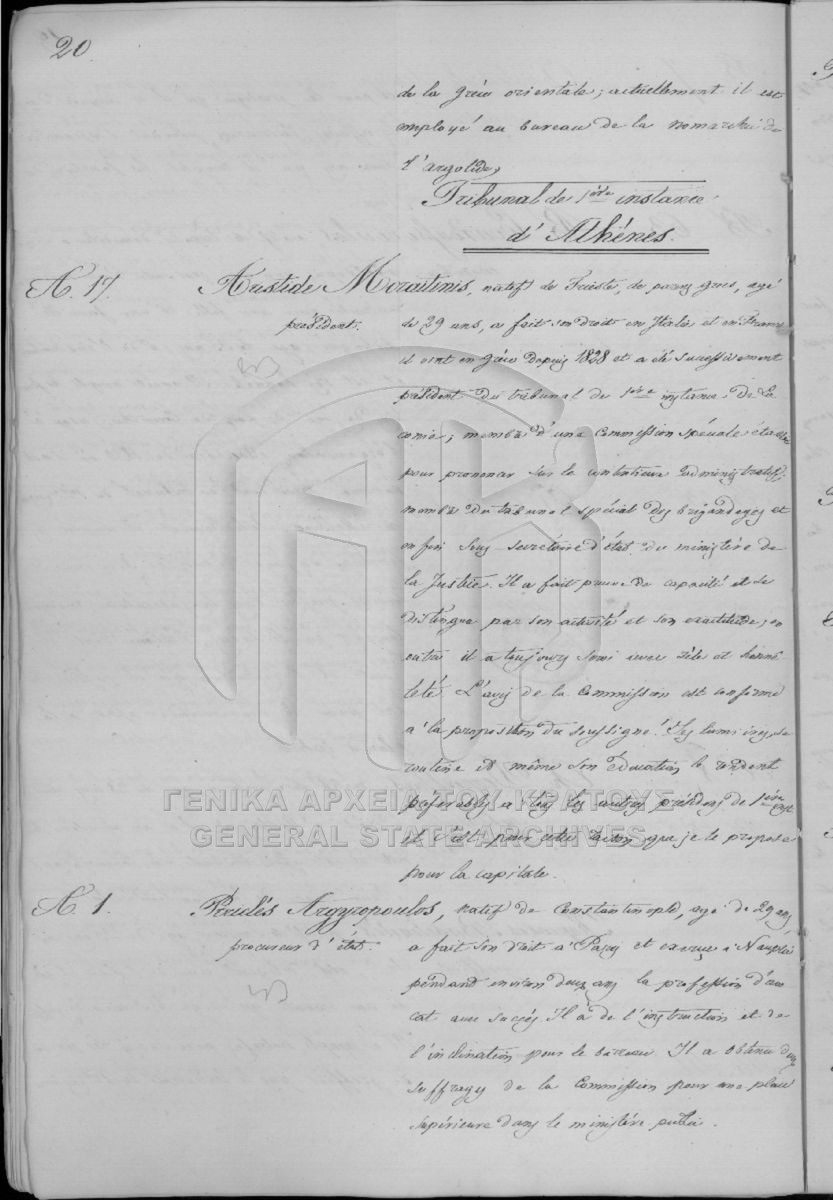 20
de la Grèce orientale; actuellement il est
employé au bureau de la nomarchie de
l'argolide,
Tribunal de 1ère instance
d'Athénes.
A. 17. Aristide Moraitinis, natif de Trieste, de parens grecs, agé
président. de 29 ans, a fait son droit en Italie et en France
il vint en Grèce depuis 1828 et a été successivement
président du tribunal de 1ère instance de La
conie; membre d'une Commission spéciale établie
pour prononcer sur le contentieux administratif;
membre du tribunal spécial des brigandages et
enfin sous-secrétaire d'état du ministère de
la Justice. Il a fait preuve de capacité et se
distingue par son activité et son exactitude; en
outre il a toujours servi avec zèle et honnê-
teté. L'avis de la Commission est conforme
à la proposition du soussigné. Ses lumières, sa
routine et même son éducation le rendent
préférable à tous les autres présidens de 1ère inst
et c'est pour cette raison que je le propose
pour la capitale.
A. 1. Périclés Argyropoulos, natif de Constantinople, agé de 29 ans,
procureur d'état. a fait son droit à Paris et exerce à Nauplie
pendant environ deux ans la profession d'avo
cat avec succès. Il a de l'instruction et de
l'inclination pour le barreau. Il a obtenu deux
suffrages de la Commission pour une place
supérieure dans le ministère public.
ΓΕΝΙΚΑ ΑΡΧΕΙΑ ΤΟΥ ΚΡΑΤΟΥΣ
GENERAL STATE ARCHIVES